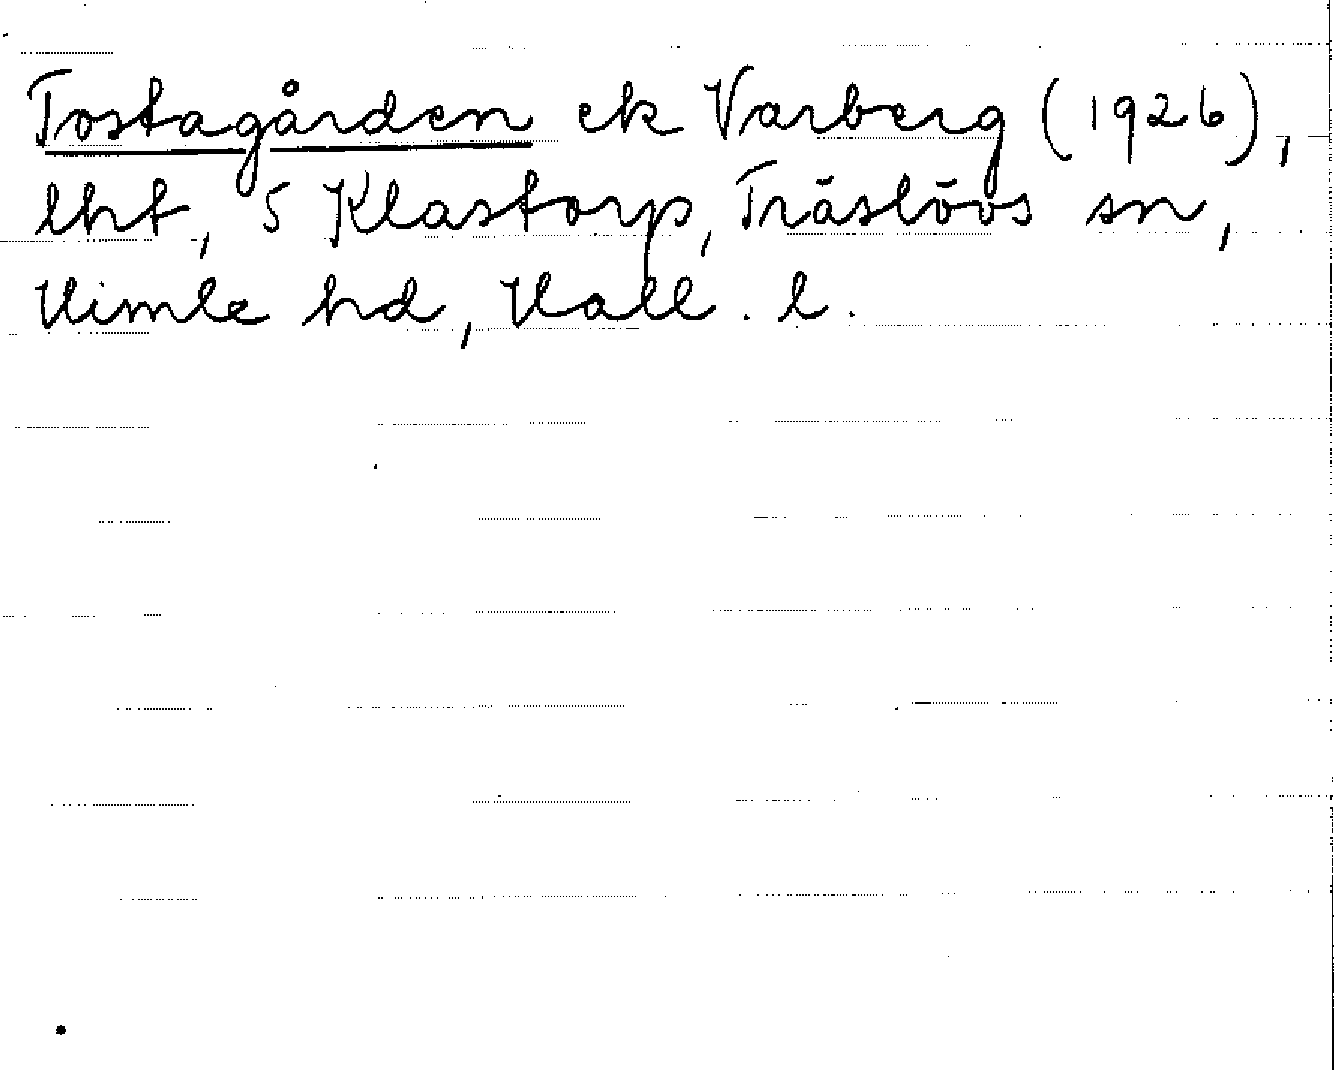 Tostagården ek Varberg (1926),
lht, 5 Klastorp, Träslövs sn,
Himle hd, Hall. l.